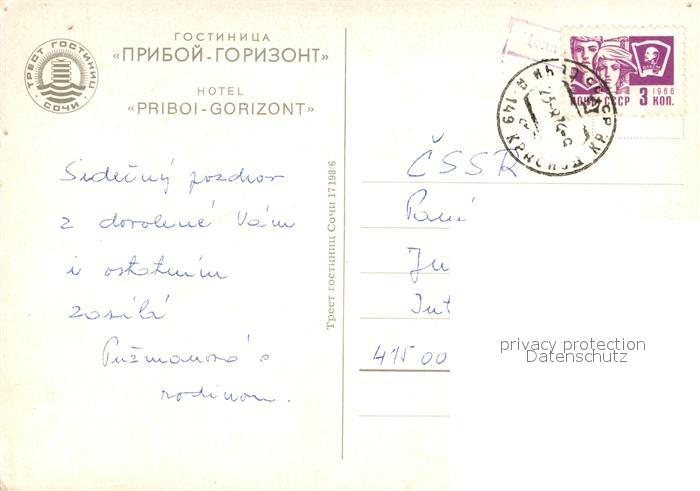 ГОСТИНИЦА
«ПРИБОЙ-ГОРИЗОНТ»
HOTEL
«PRIBOI-GORIZONT»
ТРЕСТ ГОСТИНИЦ
СОЧИ
1966
ПОЧТА СССР 3 КОП.
СОЧИ
149 КРАСНОД. КР.
Srdečný pozdrav
z dovolené Vám
i ostatním
zasílá
Pužmanová s
rodinou.
Трест гостиниц Сочи 17198/6
ČSSR
Paní
Ju
Int
415 00
privacy protection
Datenschutz